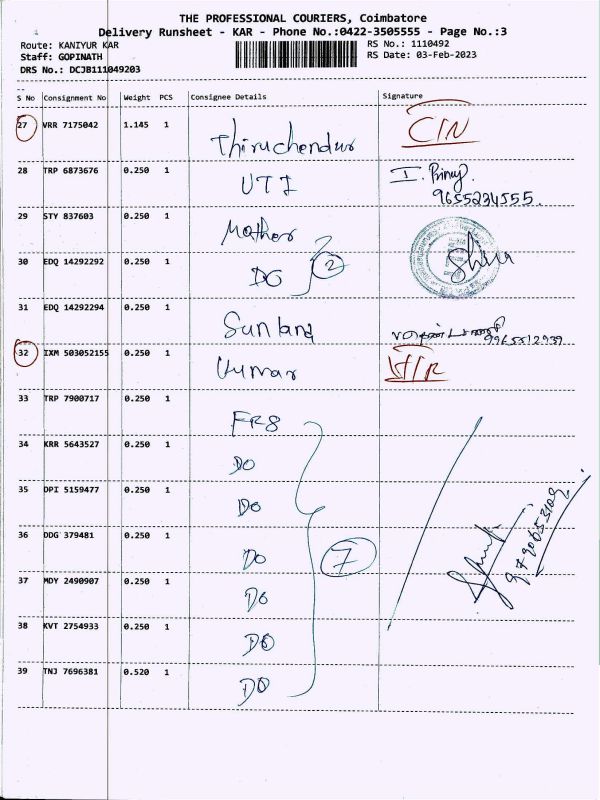 THE PROFESSIONAL COURIERS, Coimbatore
Delivery Runsheet - KAR - Phone No.:0422-3505555 - Page No.:3
Route: KANIYUR KAR
RS No.: 1110492
Staff: GOPINATH
RS Date: 03-Feb-2023
DRS No.: DCJB111049203
S No Consignment No Weight PCS Consignee Details Signature
27 VRR 7175042 1.145 1 Thiruchendur CIN
28 TRP 6873676 0.250 1 UTI I. Priny.
9655234555.
29 STY 837603 0.250 1 Mather
30 EDQ 14292292 0.250 1 DO 2 Shiva
31 EDQ 14292294 0.250 1 Sunland
32 IXM 503052155 0.250 1 Kumar
33 TRP 7900717 0.250 1 FR8
34 KRR 5643527 0.250 1 DO
35 DPI 5159477 0.250 1 DO
36 DDG 379481 0.250 1 DO 7
37 MDY 2490907 0.250 1 DO
38 KVT 2754933 0.250 1 DO
39 TNJ 7696381 0.520 1 DO